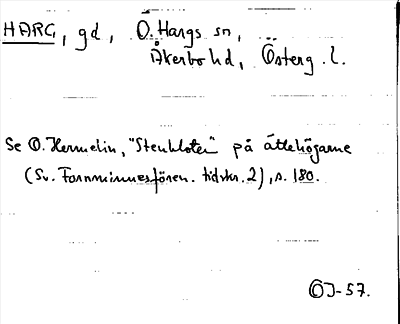 HARG, gd, Ö. Hargs sn,
Åkerbo hd, Österg. l.
Se O. Hermelin, "Stenkloten" på ättehögarne
(Sv. Fornminnesfören. tidskr. 2), s. 180.
ÖJ-57.